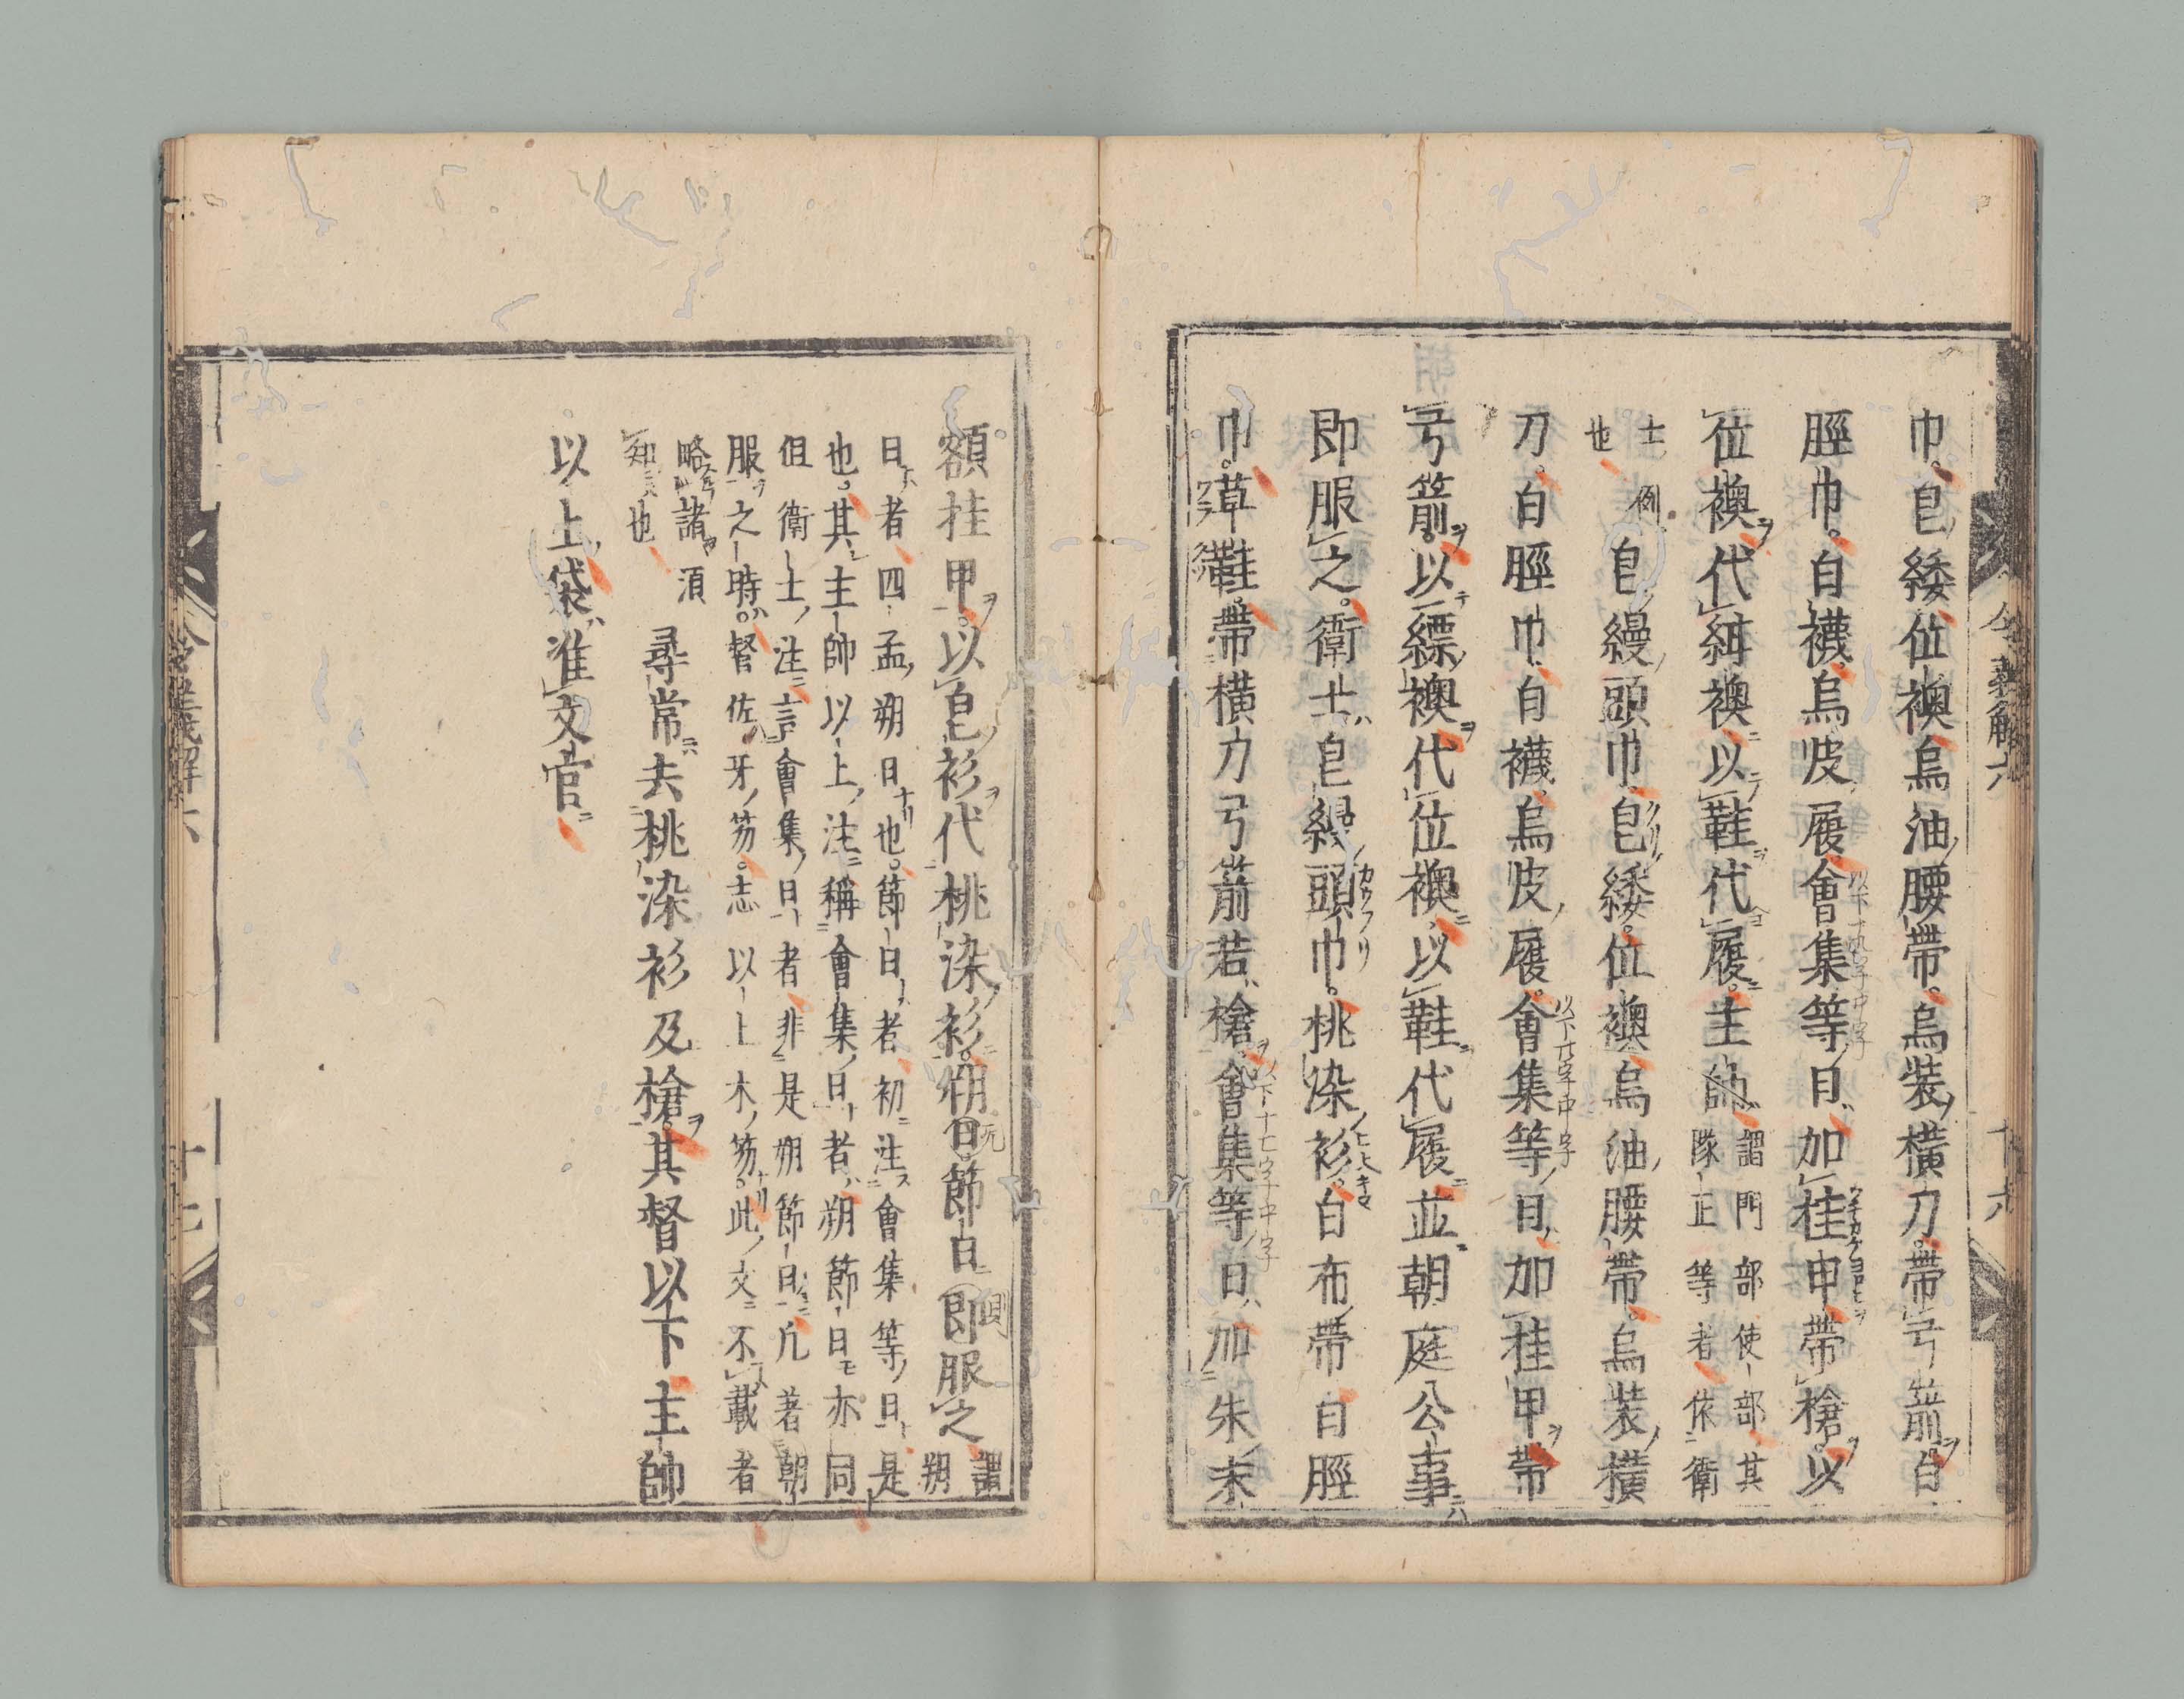 令義解六
巾。皀緌位襖烏油腰帶。烏装横刀。帶弓箭。白
脛巾。白襪烏皮履會集等日。加挂甲帶槍。以
位襖代絓襖以鞋代履。主帥
謂門部使部其
隊正等者依衛
士例
也
皀縵頭巾。皀緌。位襖烏油腰帶。烏装横
刀。白脛巾。白襪。烏皮履。會集等日。加挂甲帶
弓箭。以縹襖代位襖。以鞋代履。並朝庭公事
即服之。衛士皀縵頭巾。桃染衫。白布帶白脛
巾。草鞋。帶横刀弓箭若槍。會集等日。加朱末
額挂甲。以皀衫代桃染衫。朔日節日即服之
謂
朔
日者四孟朔日也。節日者初注會集等日是
也。其主帥以上注稱會集日者朔節日亦同
但衛士注言會集日者非是朔節日凡著朝
服之時。督佐牙笏。志以上木笏。此文不載者
略諸須
知也
尋常去桃染衫及槍。其督以下主帥
以上袋准文官
令義解六
十七